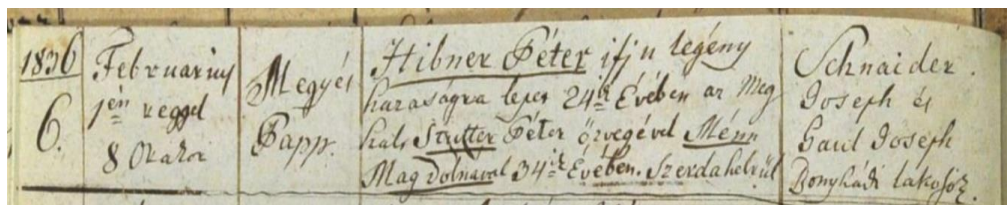 1836
6.
Februarius
1én reggel
8 Orakor
Megyés
Papp.
Hibner Péter ifju legény
házaságra lépet 24ik Évében az Meg
halt Strutter Péter özvegével Ménn
Magdolnával 34ik Évében. Szerdahelrül
Schnaider
Joseph és
Haul Joseph
Bonyhádi lakosók.